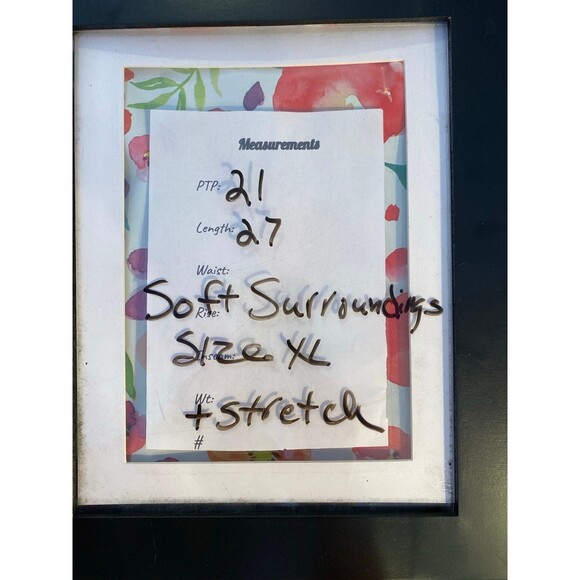 Measurements
PTP: 21
Length: 27
Waist:
Soft Surroundings
Rise:
Size XL
Inseam:
Wt:
+ stretch
#